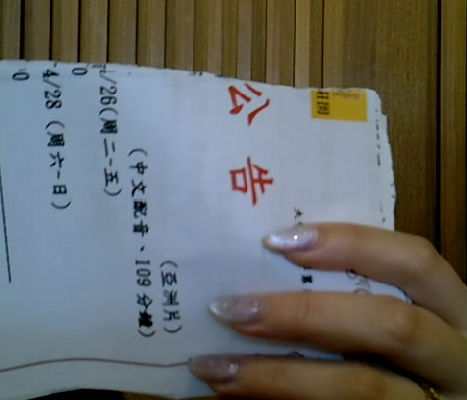 公告
(亞洲片)
(中文配音、109分鐘)
/26(周二~五)
4/28 (周六~日)